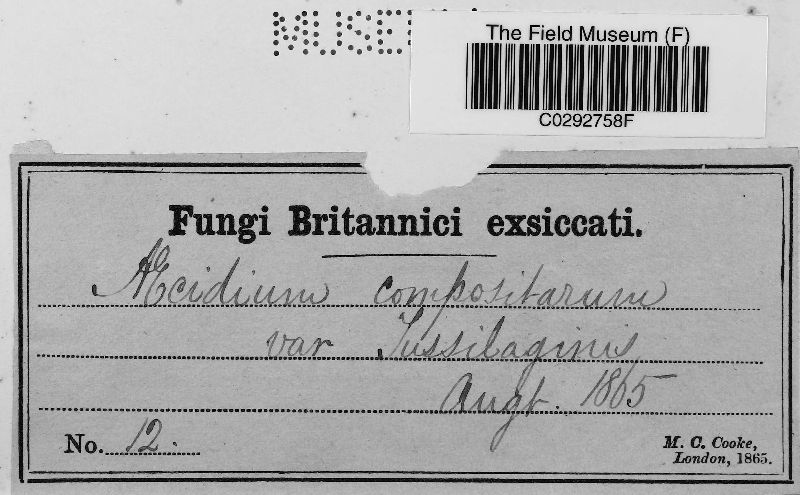 The Field Museum (F)
C0292758F
Fungi Britannici exsiccati.
Æcidium compositarum
var Tussilaginis
Augt. 1865
No. 12.
M. C. Cooke,
London, 1865.